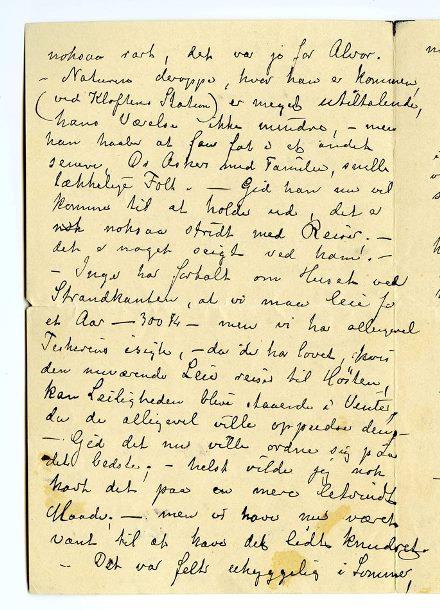 noksaa rart, det var jo for Alvor.
– Naturen deroppe, hvor han er kommen,
(ved Kløftens Station) er meget utiltalende,
hans Værelse ikke mindre, – men
han haaber at faa fat i et andet
senere. Ds Askers med Familie, snille
lækkelige Folk. – Gid han nu vil
komme til at holde ud, det er
noksaa stridt med Reiser. –
det er noget seigt ved ham! –
– Inga har fortalt om Huset ved
Strandkanten, at vi maa leie for
et Aar – 300 Kr – men vi ha allegevel
isigte, – da de ha lovet, hvis
den nuværende Leie reiser til Høsten,
kan Leiligheden blive staaende i Vente,
da de alligevel ville oppudse den, –
– Gid det nu ville ordne sig paa
det bedste; – helst vilde jeg nok
havt det paa en mere letvindt
Maade; – men vi have nu været
vant til at have det lidt knudret. –
– Det var felt uhyggelig i Sommer,